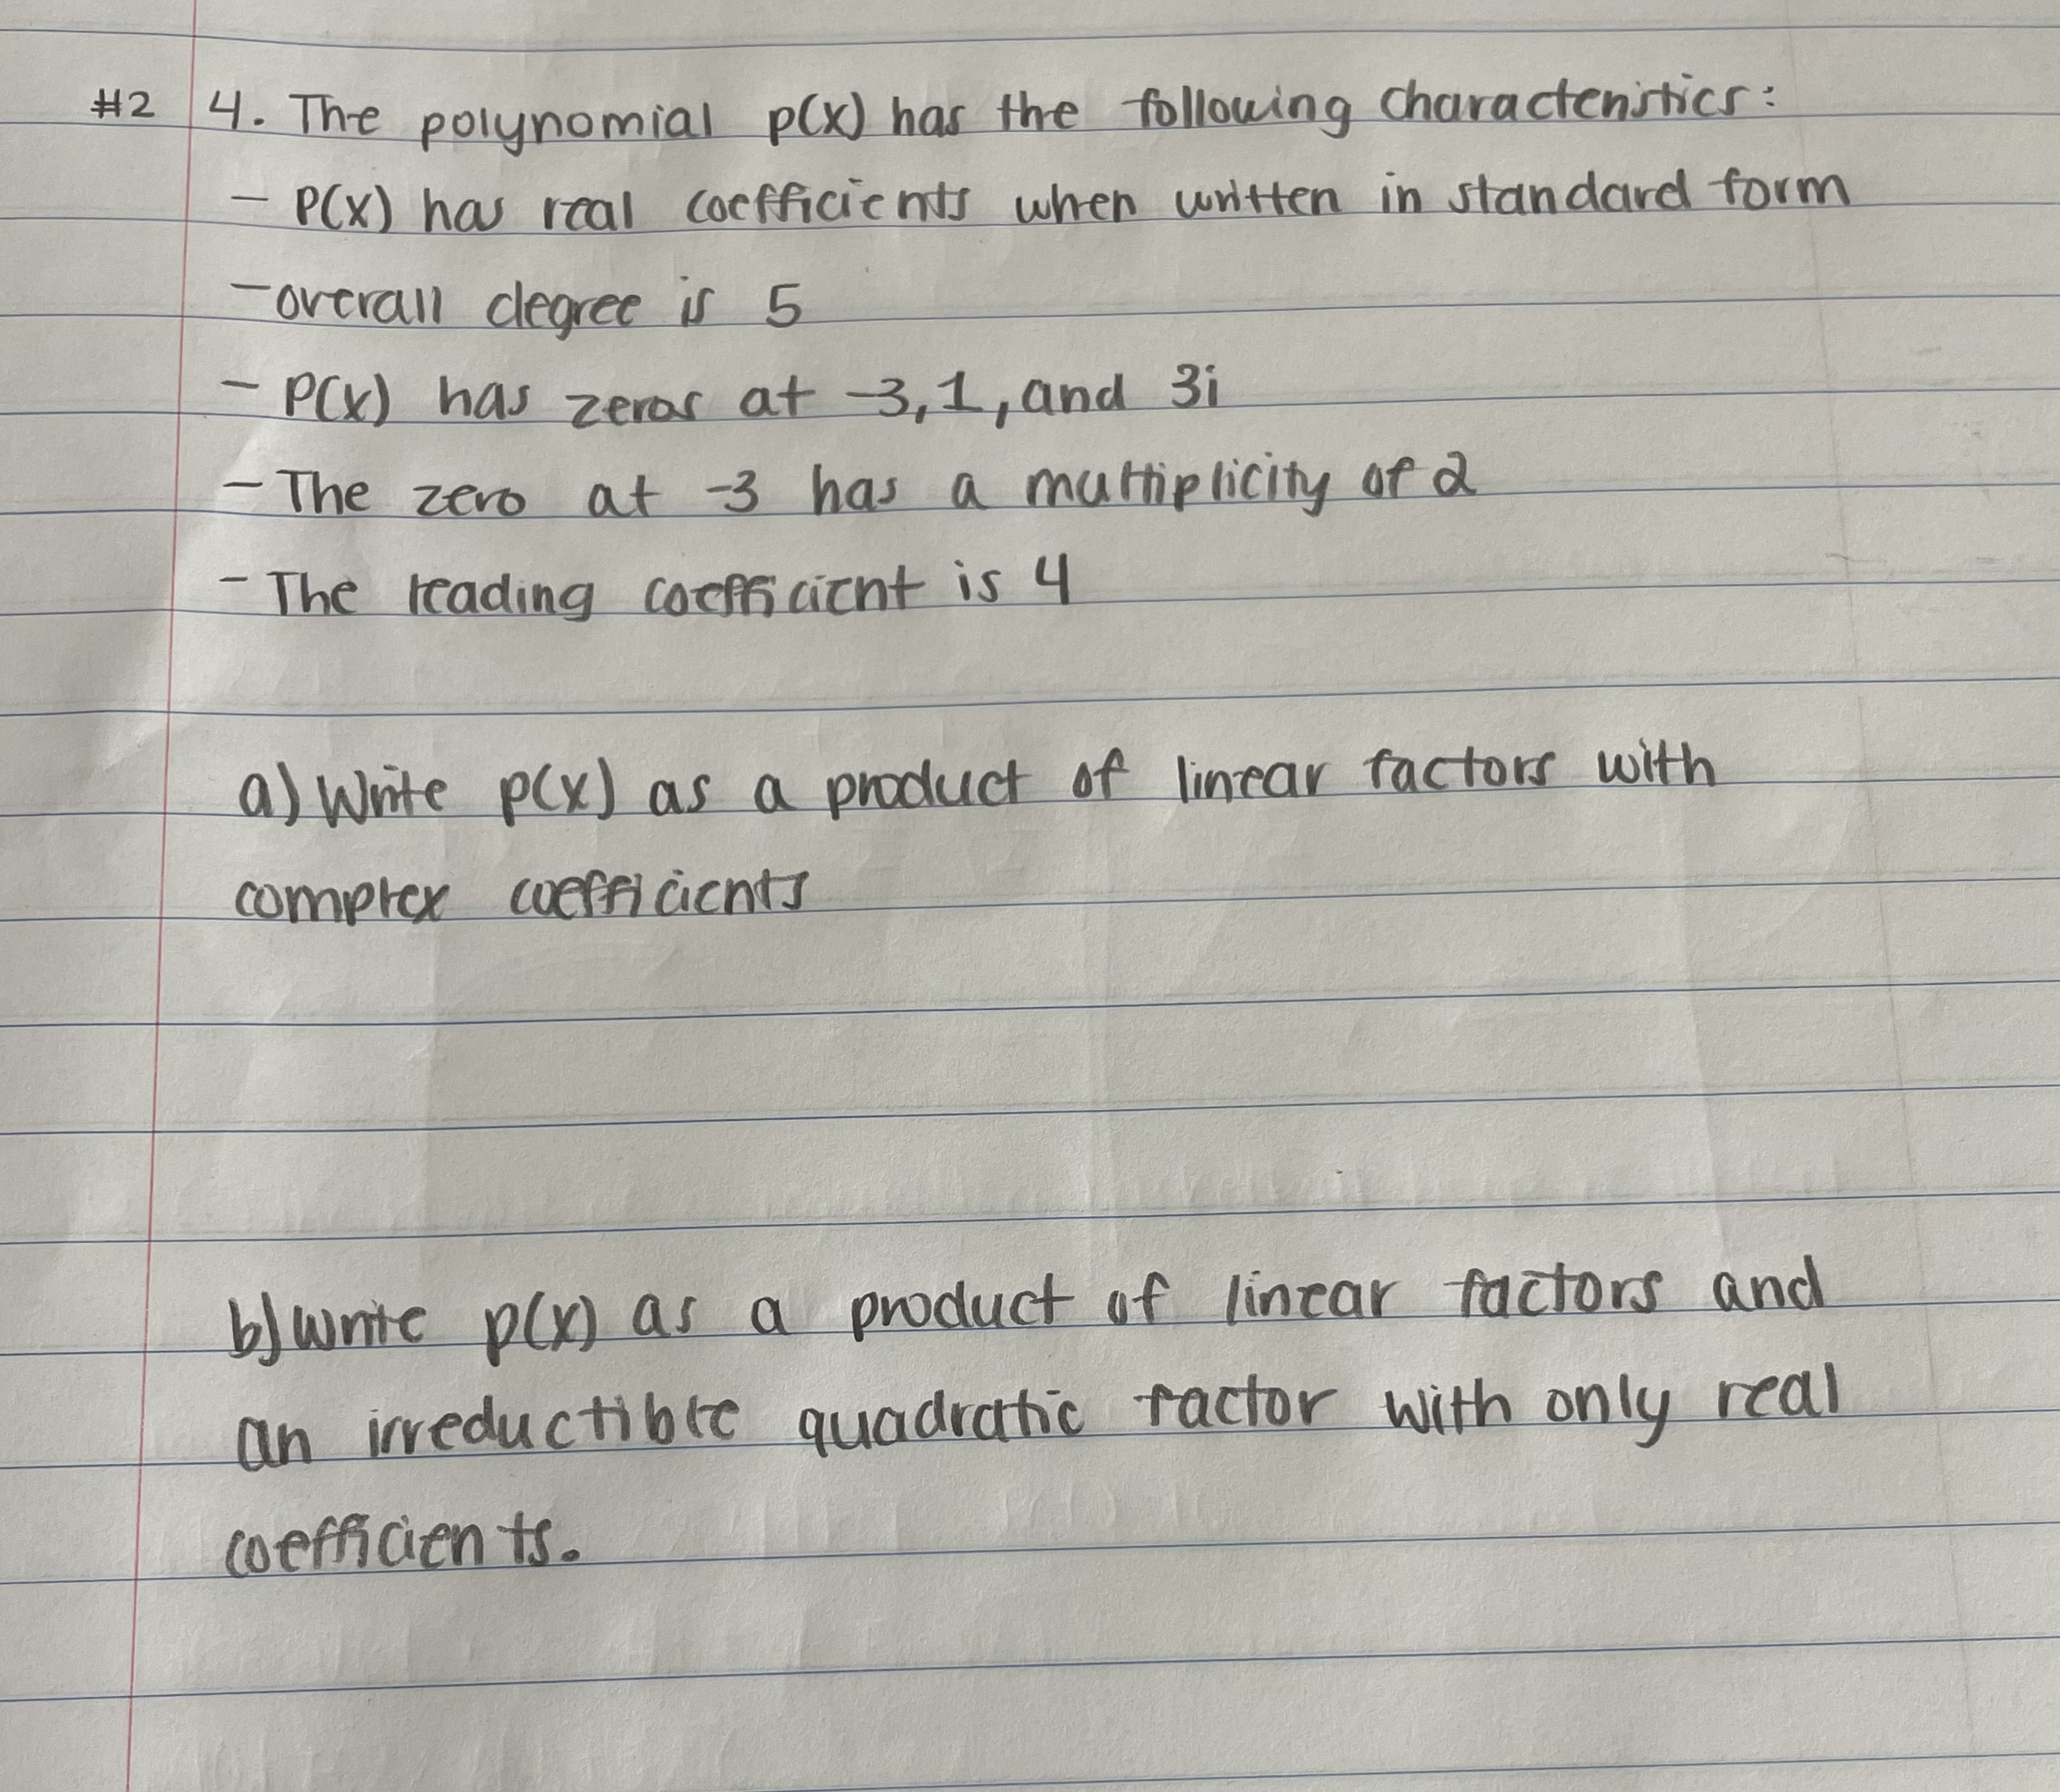 #2 4. The polynomial p(x) has the following characteristics:
- P(x) has real coefficients when written in standard form
- overall degree is 5
- P(x) has zeros at -3, 1, and 3i
- The zero at -3 has a multiplicity of 2
- The leading coefficient is 4
a) Write p(x) as a product of linear factors with
complex coefficients
b) Write p(x) as a product of linear factors and
an irreductible quadratic factor with only real
coefficients.